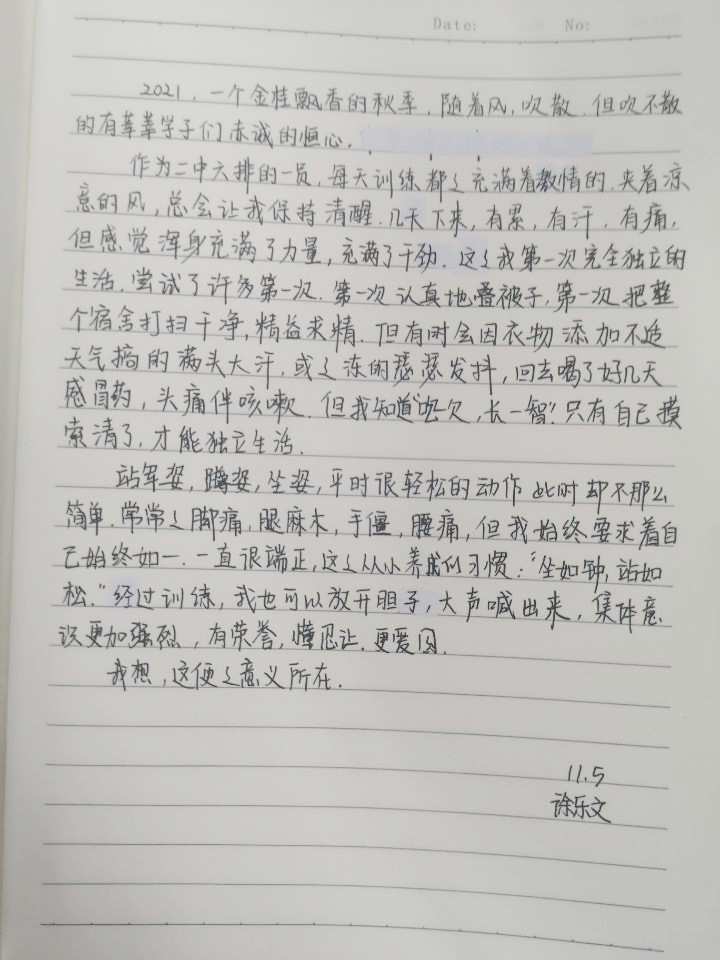 Date: No:
2021，一个金桂飘香的秋季，随着风，吹散，但吹不散
的有莘莘学子们赤诚的恒心．
作为二中六排的一员，每天训练都是充满着激情的．夹着凉
意的风，总会让我保持清醒．几天下来，有累，有汗，有痛，
但感觉浑身充满了力量，充满了干劲．这是我第一次完全独立的
生活，尝试了许多第一次．第一次认真地叠被子，第一次把整
个宿舍打扫干净，精益求精．但有时会因衣物添加不适
天气搞的满头大汗，或是冻的瑟瑟发抖，回去喝了好几天
感冒药，头痛伴咳嗽．但我知道“吃一欠，长一智”．只有自己摸
索清了，才能独立生活．
站军姿，蹲姿，坐姿，平时很轻松的动作此时却不那么
简单．常常是脚痛，腿麻木，手僵，腰痛，但我始终要求着自
己始终如一．一直很端正，这是从小养成的习惯：“坐如钟，站如
松．”经过训练，我也可以放开胆子，大声喊出来，集体意
识更加强烈，有荣誉，懂忍让．更爱国．
我想，这便是意义所在．
11.5
徐乐文